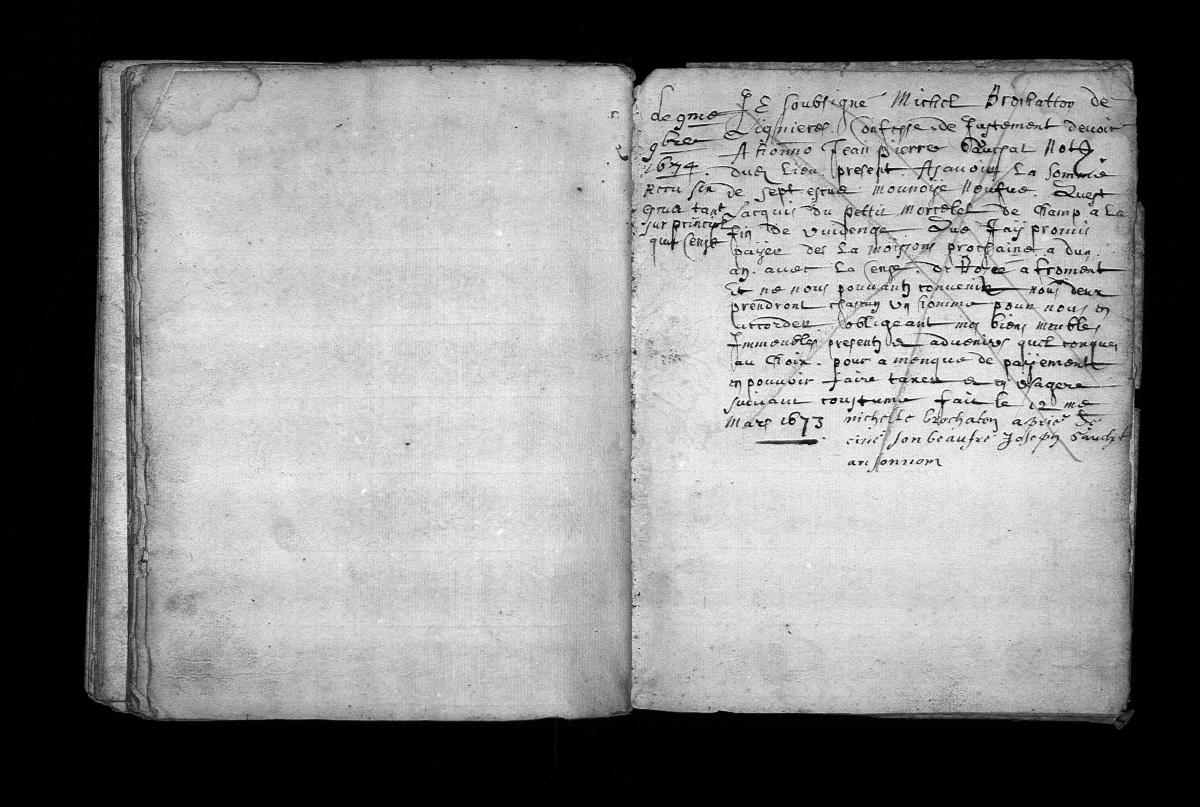 le 9me
9bre
1674.
Reçu six
escus tant
sur principal
que Cense
JE Soubsigné Michel Brochatton de
Lignieres Confesse de Justement devoir
A honno Jean Pierre Not
dud Lieu present. Asavoir La Somme
de sept escus monnoye Neufve. Quest
Jacquis du pettit Morcelet de Champ a La
fin de vuidenge. Que Jay promis
payée des La moissons prochaine a dun
an. avec La Cense. de Rozée a froment
Et ne nous pouvants convenir nous deux
prendront chascun Un homme pour nous en
accorder obligeant mes biens meubles
Immeubles presents et advenires quil Conques
au Choix. pour a menque de payement
en pouvoir faire taxer et en usagere
suivant coustume fait le 12 me
Mars 1673 michelle brochaton a prié de
siné son beaufre Joseph
an son nom